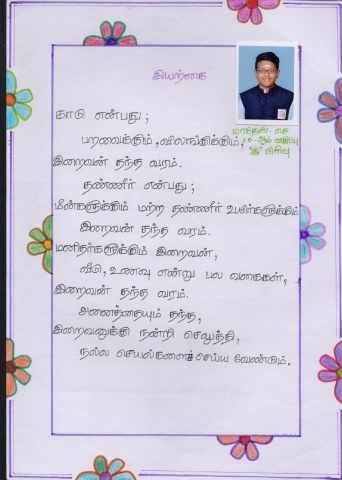 இயற்கை
மாதேஸ்.கை
10-ஆம் வகுப்பு
"இ" பிரிவு
காடு என்பது;
பறவைக்கும், விலங்கிக்கும்,
இறைவன் தந்த வரம்.
தண்ணீர் என்பது;
மீன்களுக்கும் மற்ற தண்ணீர் உயிர்களுக்கும்
இறைவன் தந்த வரம்.
மனிதர்களுக்கும் இறைவன்,
வீடு, உணவு என்று பல வகைகள்,
இறைவன் தந்த வரம்.
அனைத்தையும் தந்த,
இறைவனுக்கு நன்றி செலுத்தி,
நல்ல செயல்களைச்செய்ய வேண்டும்.